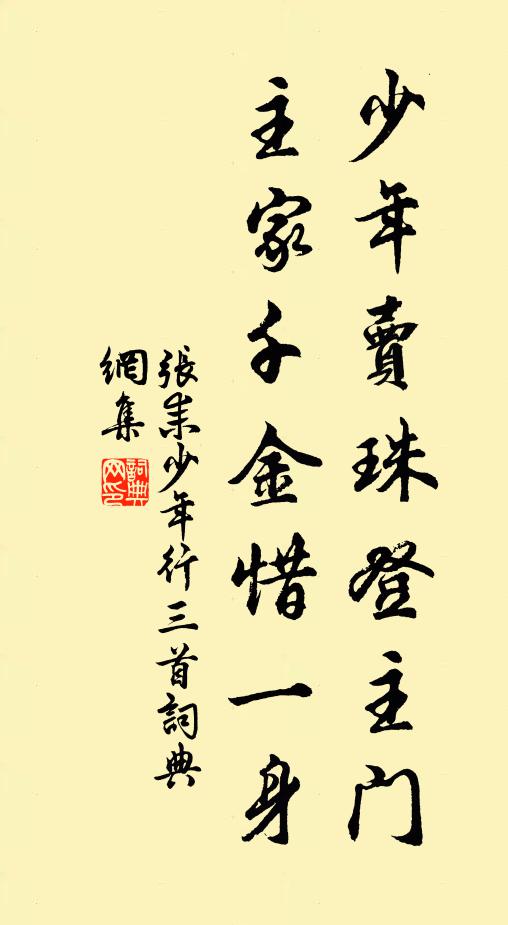 少年賣珠登主門
主家千金惜一身
張耒少年行三首詞典
網集
詞典網印